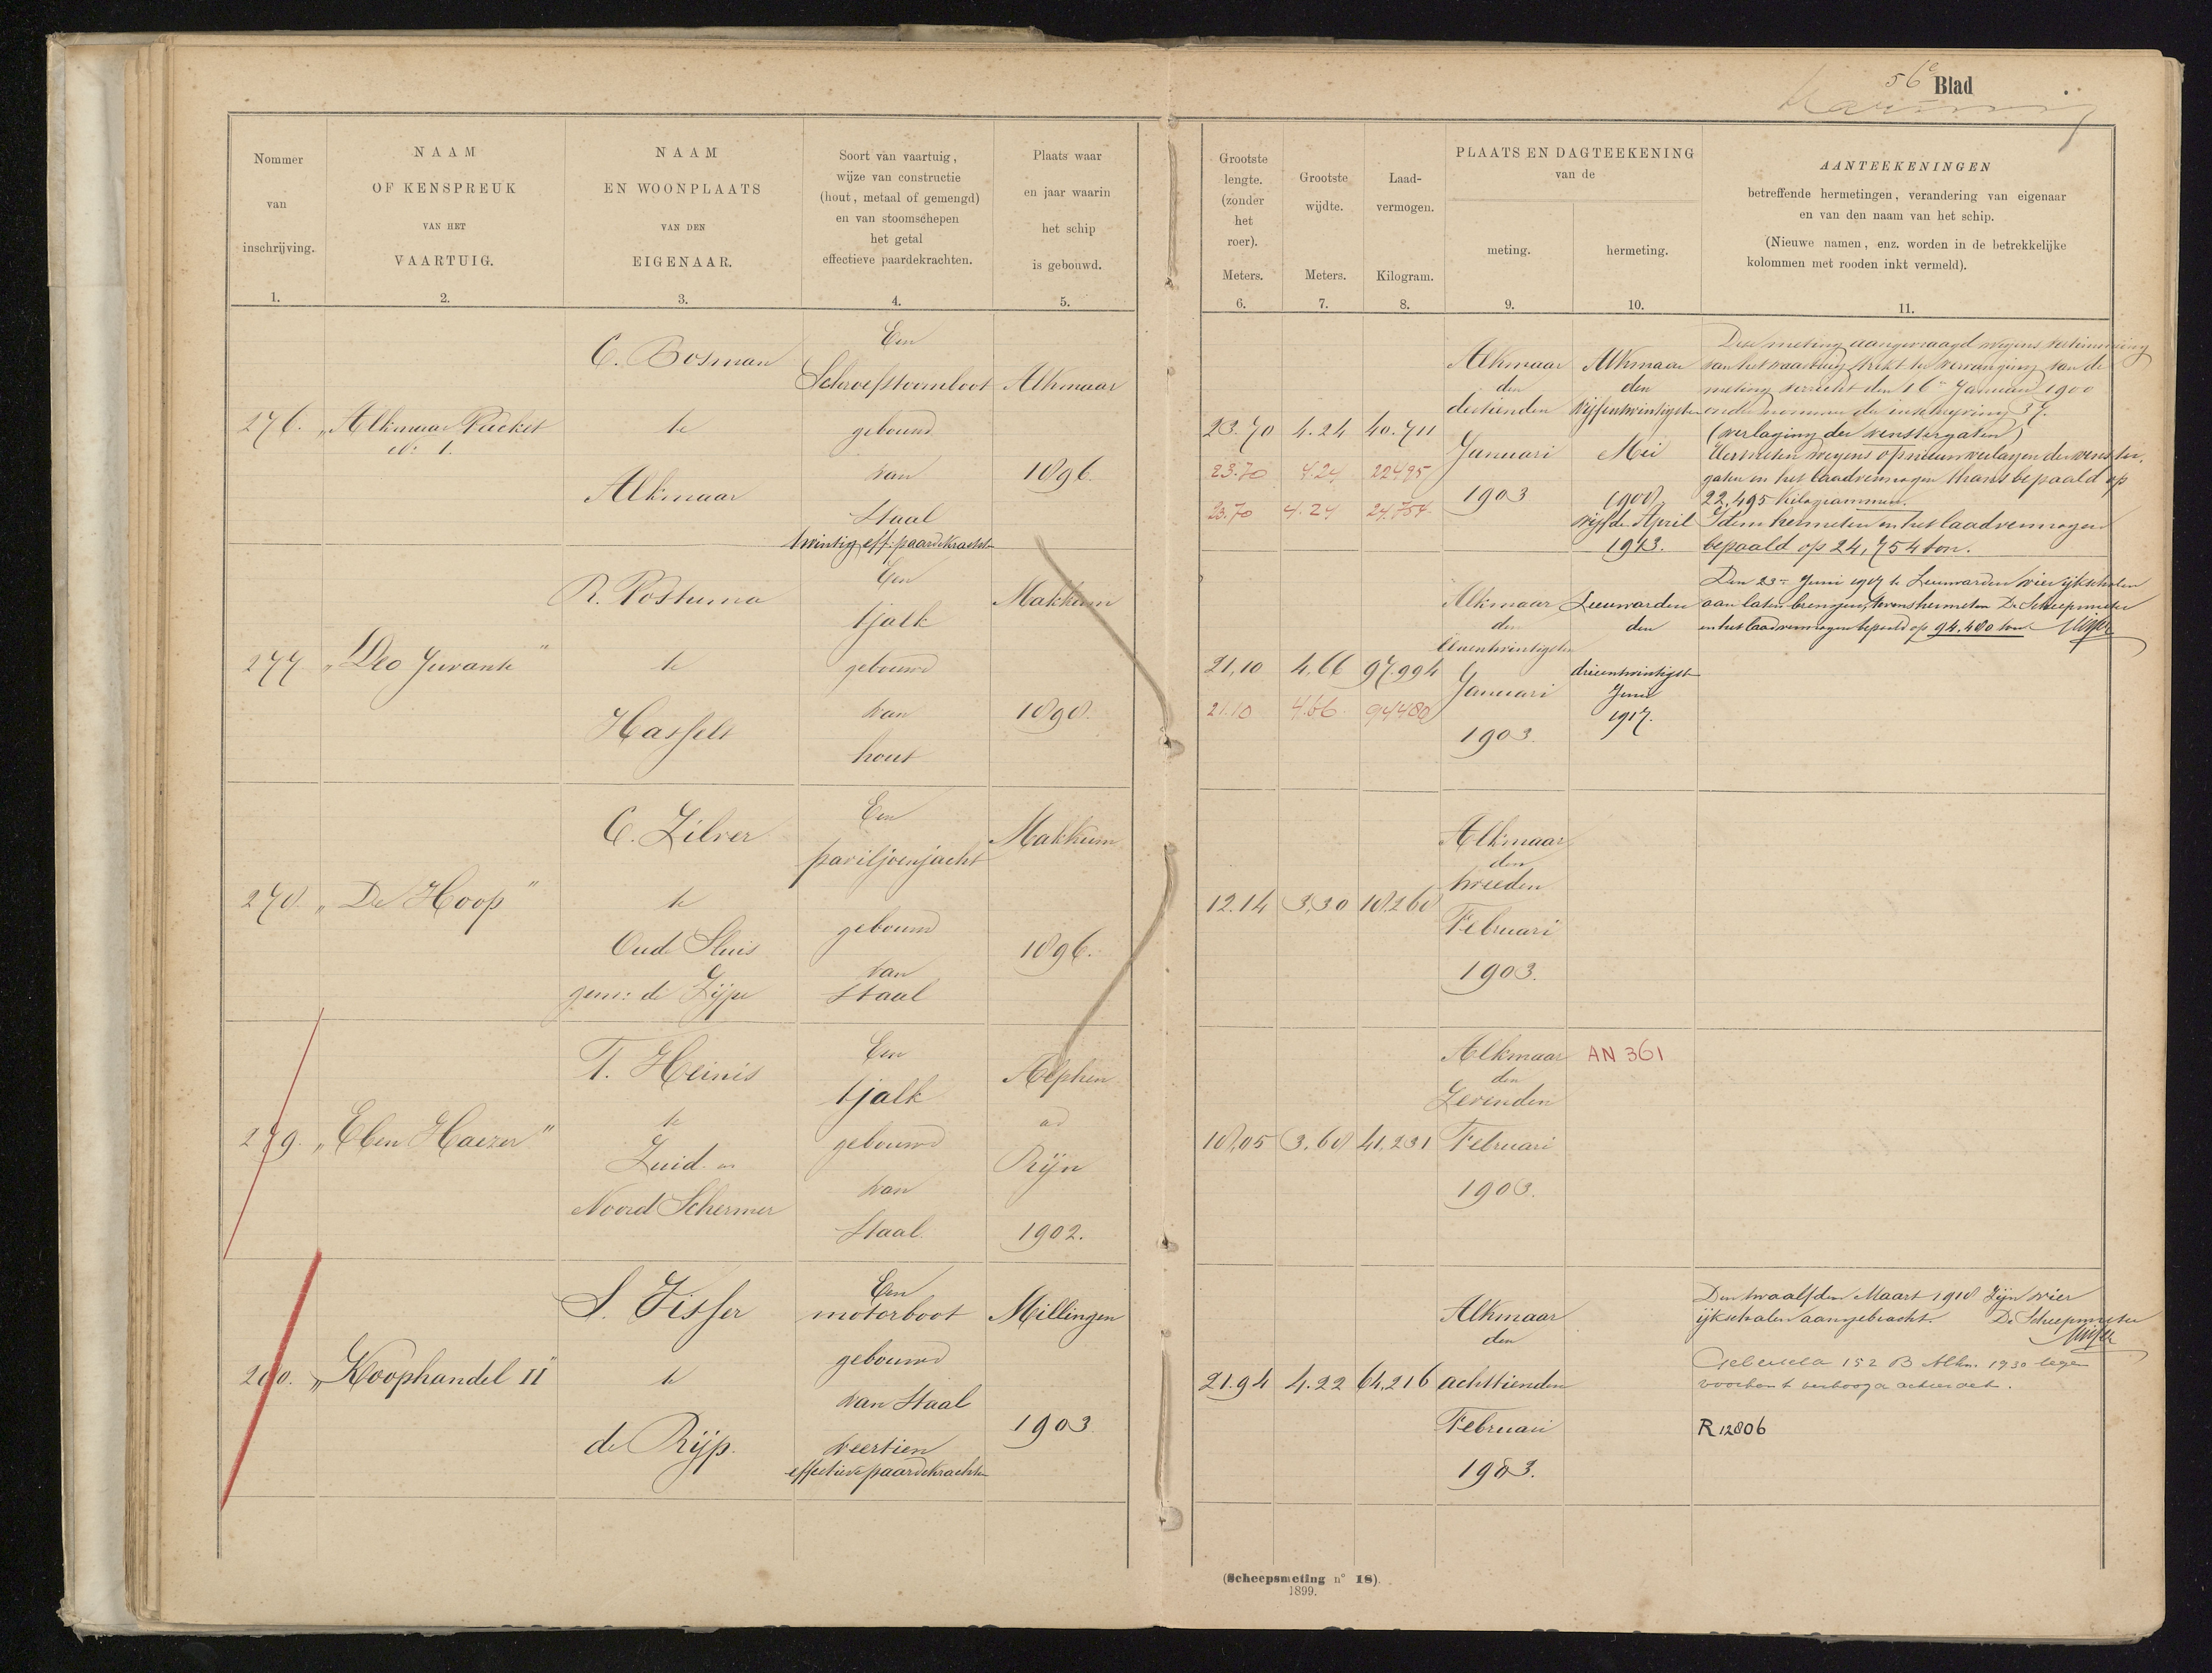 56e Blad
Nommer
van
inschrijving.
1.
NAAM
OF KENSPREUK
VAN HET
VAARTUIG.
2.
NAAM
EN WOONPLAATS
VAN DEN
EIGENAAR.
3.
Soort van vaartuig,
wijze van constructie
(hout, metaal of gemengd)
en van stoomschepen
het getal
effectieve paardekrachten.
4.
Plaats waar
en jaar waarin
het schip
is gebouwd.
5.
Grootste
lengte.
(zonder
het
roer).
Meters.
6.
Grootste
wijdte.
Meters.
7.
Laad-
vermogen.
Kilogram.
8.
PLAATS EN DAGTEEKENING
van de
meting.
9.
hermeting.
10.
AANTEEKENINGEN
betreffende hermetingen, verandering van eigenaar
en van den naam van het schip.
(Nieuwe namen, enz. worden in de betrekkelijke
kolommen met rooden inkt vermeld).
11.
276.
„Alkmaar Packet
No: 1.
C. Bosman
te
Alkmaar
Een
Schroefstoomboot
gebouwd
van
Staal
twintig eff: paardekrachten
Alkmaar
1896.
23.70 4.24 40.711
23.70 4.24 22495
23.70 4.24 24.754.
Alkmaar
den
dertienden
Januari
1903
Alkmaar
den
vijfentwintigsten
Mei
1908
vijfde April
1913.
Deze meting aangevraagd wegens
van het vaartuig strekt ter vervanging van de
meting verricht den 16n Januari 1900
onder nommer der inschrijving 37.
(verlaging der venstergaten)
Hermeten wegens opnieuw verlagen der venster-
gaten en het laadvermogen thans bepaald op
22.495 kilogrammen.
Idem hermeten en het laadvermogen
bepaald op 24,754 ton.
277
„Deo Juvante"
R. Postuma
te
Hasselt
Een
tjalk
gebouwd
van
hout
Makkum
1898.
21,10 4,66 97.994
21.10 4.66. 94480
Alkmaar
den
Eenentwintigsten
Januari
1903.
Leeuwarden
den
drieentwintigste
Juni
1917.
Den 23n Juni 1917 te Leeuwarden vier ijkschalen
aan laten brengen, tevens hermeten De Scheepsmeter
en het laadvermogen bepaald op 94.480 ton.
278.
„De Hoop"
C. Zilver
te
Oude Sluis
gem: de Zijpe
Een
paviljoenjacht
gebouwd
van
Staal
Makkum
1896.
12.14 3,30 18.268
Alkmaar
den
tweeden
Februari
1903.
279.
„Eben Haezer"
T. Heinis
te
Zuid- en
Noord Schermer
Een
tjalk
gebouwd
van
Staal.
Alphen
a/d
Rijn
1902.
18,05 3,68 41,231
Alkmaar
den
Zevenden
Februari
1903.
AN 361
280.
„Koophandel II"
S. Visser
te
de Rijp.
Een
motorboot
gebouwd
van Staal
veertien
effectieve paardekrachten
Millingen
1903
21.94 4.22 64,216
Alkmaar
den
achttienden
Februari
1903.
Den twaalfden Maart 1918 Zijn vier
ijkschalen aangebracht. De Scheepsmeter
152 B Alkm. 1930
R 12806
(Scheepsmeting n° 18).
1899.